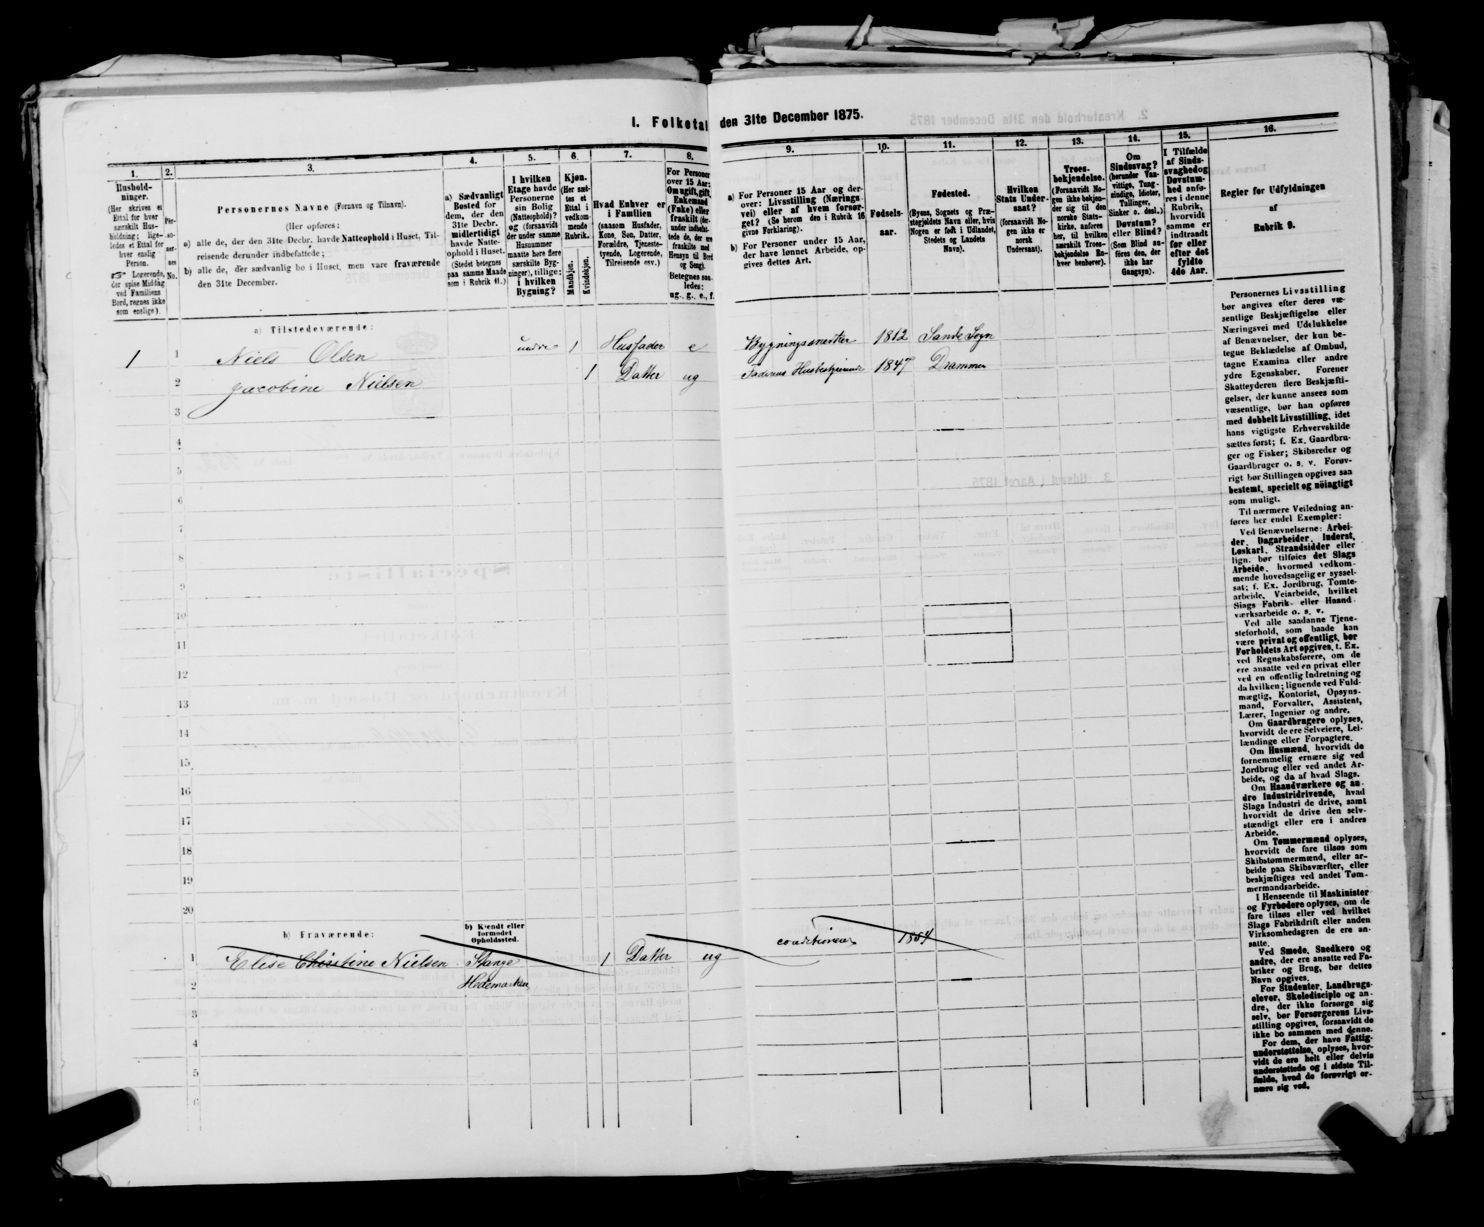 I. Folketal den 31te December 1875.
1.
Hushold-
ninger.
(Her skrives et
Ettal for hver
særskilt Hus-
holdning; lige-
ledes et Ettal for
hver enslig
Person.
☞ Logerende,
der spise Middag
ved Familiens
Bord, regnes ikke
som enslige).
2.
Per-
so-
ner-
nes
No.
3.
Personernes Navne (Fornavn og Tilnavn).
(Her opføres:
a) alle de, der den 31te Decbr. havde Natteophold i Huset, Til-
reisende derunder indbefattede;
b) alle de, der sædvanlig bo i Huset, men vare fraværende
den 31te December.
4.
a) Sædvanligt
Bosted for
dem, der den
31te Decbr.
midlertidigt
havde Natte-
ophold i Huset.
(Stedet betegnes
paa samme Maade
som i Rubrik 11.)
5.
I hvilken
Etage havde
Personerne
sin Bolig
(Natteophold)?
og (forsaavidt
der under samme
Husnummer
maatte høre flere
særskilte Byg-
ninger), tillige:
i hvilken
Bygning?
6.
Kjøn.
(Her sæt-
tes et
Ettal i
vedkom-
mende
Rubrik.
Mandkjøn.
Kvindekjøn.
7.
Hvad Enhver er
i Familien
(saasom Husfader,
Kone, Søn, Datter,
Forældre, Tjeneste-
tyende, Logerende,
Tilreisende osv.)
8.
For Personer
over 15 Aar:
Om ugift, gift,
Enkemand
(Enke) eller
fraskilt (der-
under indbefat-
tede de, der ere
fraskilte med
Hensyn til Bord
og Seng).
Betegnes saa-
ledes:
ug., g., e., f.
9.
a) For Personer 15 Aar og der-
over: Livsstilling (Nærings-
vei) eller af hvem forsør-
get? (Se herom den i Rubrik 16
givne Forklaring).
b) For Personer under 15 Aar,
der have lønnet Arbeide, op-
gives dettes Art.
10.
Fødsels-
aar.
11.
Fødested.
(Byens, Sognets og Præ-
stegjeldets Navn eller, hvis
Nogen er født i Udlandet,
Stedets og Landets
Navn).
12.
Hvilken
Stats Under-
saat?
(forsaavidt No-
gen ikke er
norsk
Undersaat).
13.
Troes-
bekjendelse.
(Forsaavidt No-
gen ikke bekjen-
der sig til den
norske Stats-
kirke, anføres
her, til hvilken
særskilt Troes-
bekjendelse En-
hver henhører).
14.
Om
Sindssvag?
(herunder Van-
vittige, Tung-
sindige, Idioter,
Tullinger,
Sinker o. desl.)
Døvstum?
eller Blind?
(Som Blind an-
føres den, der
ikke har
Gangsyn).
15.
I Tilfælde
af Sinds-
svaghed og
Døvstum-
hed anfø-
res i denne
Rubrik,
hvorvidt
samme er
indtraadt
før eller
efter det
fyldte
4de Aar.
16.
Regler for Udfyldningen
af
Rubrik 9.
a) Tilstedeværende:
1 1 Niels Olsen undre 1 Husfader e Bygningssnedker 1812 Sande Sogn
2 Jacobine Nielsen 1 Datter ug Faderens Husbestyrerinde 1847 Drammen
3
4
5
6
7
8
9
10
11
12
13
14
15
16
17
18
19
20
b) Fraværende:
b) Kjendt eller
formodet
Opholdssted.
1 Elise Christine Nielsen Stange 1 Datter ug conditionerer 1854
2 Hedemarken
3
4
5
6
Personernes Livsstilling
bør angives efter deres væ-
sentlige Beskjæftigelse eller
Næringsvei med Udelukkelse
af Benævnelser, der kun be-
tegne Beklædelse af Ombud,
tagne Examina eller andre
ydre Egenskaber. Forener
Skatteyderen flere Beskjæfti-
gelser, der kunne ansees som
væsentlige, bør han opføres
med dobbelt Livsstilling, idet
hans vigtigste Erhvervskilde
sættes først; f. Ex. Gaardbru-
ger og Fisker; Skibsreder og
Gaardbruger o. s. v. Forøv-
rigt bør Stillingen opgives saa
bestemt, specielt og nøiagtigt
som muligt.
Til nærmere Veiledning an-
føres her endel Exempler:
Ved Benævnelserne: Arbei-
der, Dagarbeider, Inderst,
Løskarl, Strandsidder eller
lign. bør tilføies det Slags
Arbeide, hvormed vedkom-
mende hovedsagelig er syssel-
sat; f. Ex. Jordbrug, Tomte-
arbeide, Veiarbeide, hvilket
Slags Fabrik- eller Haand-
værksarbeide o. s. v.
Ved alle saadanne Tjene-
steforhold, som baade kan
være privat og offentligt, bør
Forholdets Art opgives, t. Ex.
ved Regnskabsførere, om de
ere ansatte ved en privat eller
ved en offentlig Indretning og
da hvilken; lignende ved Fuld-
mægtig, Kontorist, Opsyns-
mand, Forvalter, Assistent,
Lærer, Ingeniør og andre.
Om Gaardbrugere oplyses,
hvorvidt de ere Selveiere, Lei-
lændinge eller Forpagtere.
Om Husmænd, hvorvidt de
fornemmelig ernære sig ved
Jordbrug eller ved andet Ar-
beide, og da af hvad Slags.
Om Haandværkere og an-
dre Industridrivende, hvad
Slags Industri de drive, samt
hvorvidt de drive den selv-
stændigt eller ere i andres
Arbeide.
Om Tømmermænd oplyses,
hvorvidt de fare tilsøs som
Skibstømmermænd, eller ar-
beide paa Skibsværfter, eller
beskjæftiges ved andet Tøm-
mermandsarbeide.
I Henseende til Maskinister
og Fyrbødere oplyses, om de
fare tilsøs eller ved hvilket
Slags Fabrikdrift eller anden
Virksomhedsgren de ere an-
satte.
Ved Smede, Snedkere og
andre, der ere ansatte ved Fa-
briker og Brug, bør dettes
Navn opgives.
For Studenter, Landbrugs-
elever, Skoledisciple og an-
dre, der ikke forsørge sig
selv, bør Forsørgerens Livs-
stilling opgives, forsaavidt de
ikke bo sammen med denne.
For dem, der have Fattig-
understøttelse, oplyses, hvor-
vidt de ere helt eller delvis
understøttede og i sidste Til-
fælde, hvad de forøvrigt er-
nære sig ved.